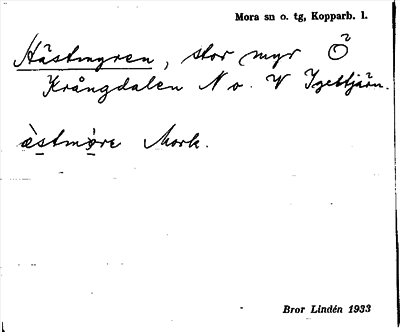 Mora sn o. tg, Kopparb. l.
Hästmyren, stor myr Ö
Krångdalen N o. V Igeltjärn.
æ̀stmỳre Mork.
Bror Lindén 1933